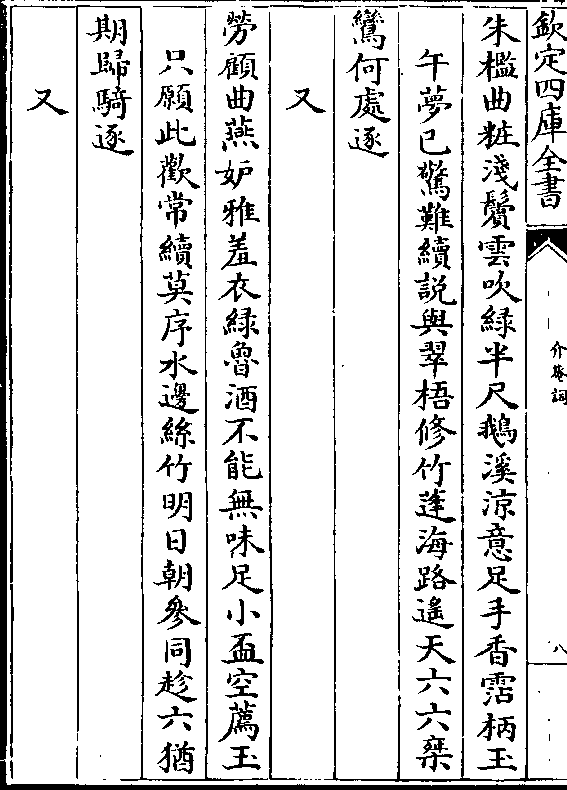 欽定四庫全書
介菴詞
八
朱檻曲粧淺鬢雲吹緑半尺鵝溪涼意足手香霑柄玉
午夢已驚難續説與翠梧修竹蓬海路遥天六六椉
鸞何處逐
又
勞顧曲燕妒雅羞衣緑魯酒不能無味足小盃空薦玉
只願此歡常續莫序水邊絲竹明日朝參同趁六猶
期歸騎逐
又